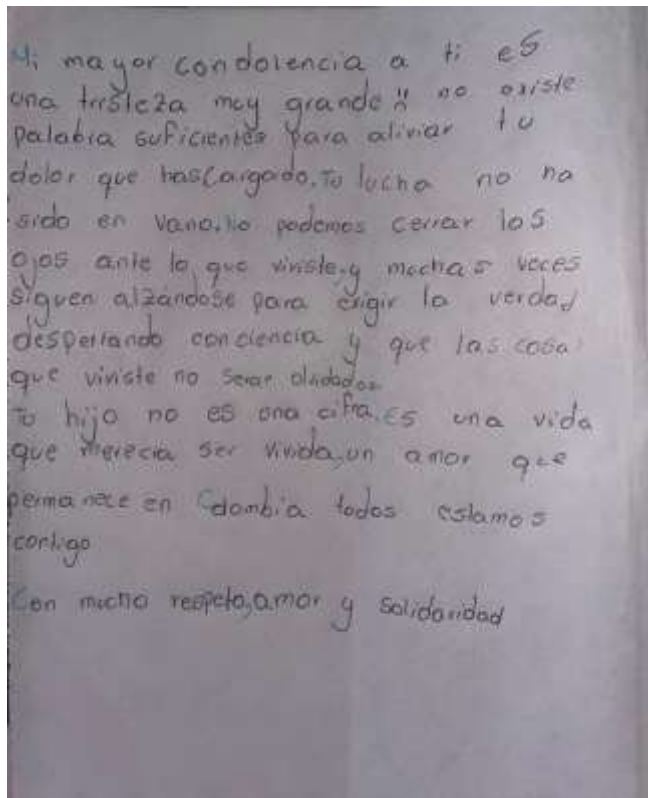 Mi mayor condolencia a ti es
una tristeza muy grande y no existe
palabra suficientes para aliviar tu
dolor que hascargado, Tu lucha no ha
sido en vano, No podemos cerrar los
ojos ante lo que viviste, y muchas voces
siguen alzándose para exigir la verdad
despertando conciencia y que las cosa
que viviste no seran olvidados
Tu hijo no es una cifra, Es una vida
que merecia ser vivida, un amor que
permanece en Colombia todos estamos
contigo
Con mucho respeto, amor y solidaridad